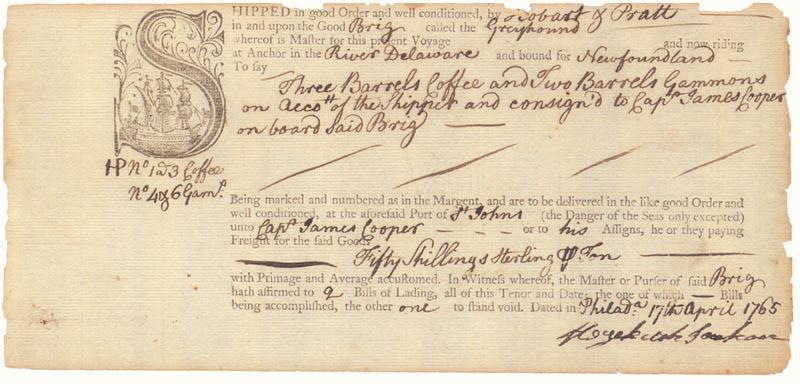 SHIPPED in good Order and well conditioned, by Hobart & Pratt
in and upon the Good Brig called the Greyhound
whereof is Master for this present Voyage and now riding
at Anchor in the River Delaware and bound for Newfoundland
To say
Three Barrels Coffee and Two Barrels Gammons
on Accot. of the Shipper and consign'd to Capt. James Cooper
on board Said Brig
HP No 1 a 3 Coffee
No. 4 & 6 Gams.
Being marked and numbered as in the Margent, and are to be delivered in the like good Order and
well conditioned, at the aforesaid Port of St Johns (the Danger of the Seas only excepted)
unto Capt. James Cooper or to his Assigns, he or they paying
Freight for the said Goods
Fifty Shillings Sterling P Ton
with Primage and Average accustomed. In Witness whereof, the Master or Purser of said Brig
hath affirmed to 2 Bills of Lading, all of this Tenor and Date, the one of which Bills
being accomplished, the other one to stand void. Dated in Philada. 17th April 1765